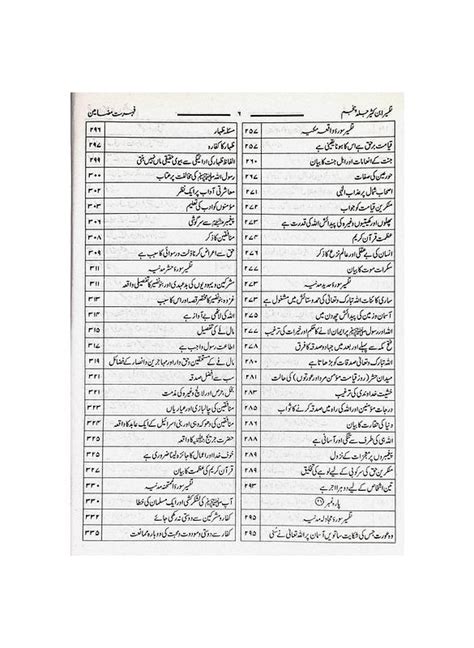 تفسیر ابن کثیر جلد پنجم
۶
فہرست مضامین
تفسیر سورۃ واقعہ مکیہ ۲۵۷
قیامت برحق ہے اس کا ہونا یقینی ہے ۲۵۷
جنت کے انعامات اور اہل جنت کا بیان ۲۶۰
حورعین کی صفات ۲۶۷
اصحاب شمال پر عذاب الٰہی ۲۷۱
منکرین قیامت کو جواب ۲۷۲
پھلوں اور کھیتیوں وغیرہ کی پیدائش اللہ کی قدرت ہے ۲۷۳
عظمت قرآن کریم
انسان کی بے عقلی اور عالم نزع کا ذکر
سکرات موت کا بیان
تفسیر سورۃ حدید مدنیہ
ساری کائنات اللہ تبارک وتعالیٰ کی حمد و ستائش میں مشغول ہے
آسمان وزمین کی پیدائش چھ دن میں
اللہ اور رسول ﷺ پر ایمان لانے کا حکم اور خیرات کی ترغیب ۲۷۸
فتح مکہ سے پہلے اور بعد میں جہاد و صدقہ کا فرق
اللہ تبارک وتعالیٰ صدقات کو بڑھاتا ہے ۲۸۰
میدان حشر (روز قیامت مؤمن مرد اور عورتوں) کی حالت ۲۸۱
خشیت خداوندی کی ترغیب ۲۸۳
درجات مؤمنین اور اللہ کی راہ میں صدقہ کرنے کا ثواب ۲۸۵
دنیا کی حقارت کا بیان
اللہ ہی کی طرف سے تنگی اور آسانی ہے ۲۸۸
پیغمبروں پر معجزات کے نزول ۲۸۹
منکرین حق کی سرکوبی کے لیے لوہے کی تخلیق ۲۸۹
تین اشخاص کے لیے دوہرا اجر ہے ۲۹۳
پارہ نمبر
تفسیر سورۃ مجادلہ مدنیہ ۲۹۵
وہ عورت جس کی شکایت ساتویں آسمان پر اللہ تعالیٰ نے سُنی ۲۹۵
مسئلہ ظہار ۲۹۶
ظہار کا کفارہ ۲۹۷
الفاظ ظہار کی ادائیگی سے بیوی حقیقی ماں نہیں بنتی ۲۹۹
رسول اللہ ﷺ کی مخالفت پر عتاب ۳۰۰
معاشرتی آداب پر ایک نظر ۳۰۲
مؤمنوں کو ادب کی تعلیم ۳۰۳
پیغمبر سے سرگوشی
منافقین کا ذکر ۳۰۸
حق سے اعراض کرنا ذلت ورسوائی کا سبب ہے ۳۰۹
تفسیر سورۃ حشر مدنیہ ۳۱۱
مشرکین و یہودیوں کی بدعہدی اور بنو نضیر کا تفصیلی واقعہ ۳۱۱
غزوہ بنو نضیر کا مختصر قصہ اور اس کا سبب
اللہ کی لاٹھی بے آواز ہے
مال فے کی تفصیل
اطاعت رسول واجب ہے
مال فے کے مستحقین حق دار اور مہاجرین و انصار کے فضائل ۳۱۹
سب سے افضل صدقہ ۳۲۱
بخل اور حرص اور لالچ وغیرہ کی مذمت ۳۲۱
منافقین کی چالبازی اور عیاریاں
منافقین کی دھوکہ دہی اور بنی اسرائیل کے ایک عابد کا واقعہ
حضرت جریج رحمہ اللہ کا واقعہ ۳۲۵
خوف خدا اور اعمال کا جائزہ لینا ضروری ہے ۳۲۵
قرآن کریم کی عظمت کا بیان ۳۲۷
تفسیر سورۃ الممتحنہ مدنیہ ۳۳۰
آپ ﷺ کی لشکر کشی اور ایک مسلمان کی خطا ۳۳۰
کفار سے دوستی نہ رکھی جائے ۳۳۲
کفار سے دوستی و مودت و محبت کی دوبارہ ممانعت ۳۳۵